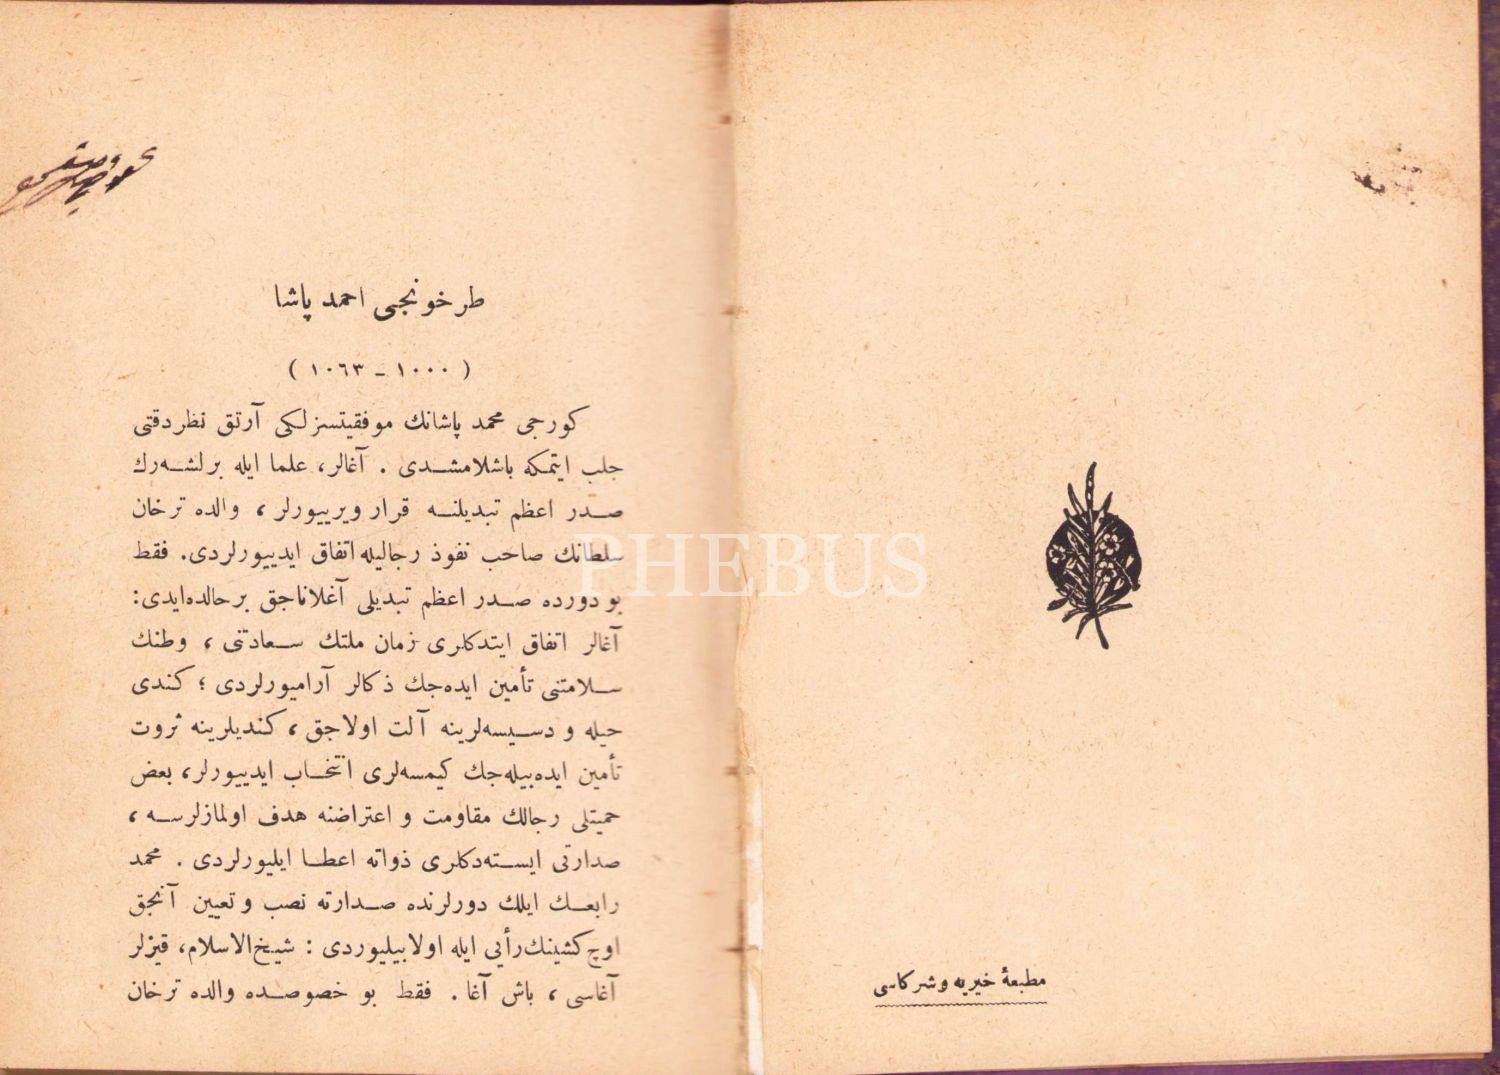 مطبعهٔ خیریه وشركاسی
طرخونجی احمد پاشا
( ١٠٠٠ - ١٠٦٣ )
كورجی محمد پاشانك موفقیتسزلكی آرتق نظردقتی
جلب ایتمكه باشلامشدی . آغالر، علما ایله برلشه‌رك
صدر اعظم تبدیلنه قرار ویرییورلر، والده ترخان
سلطانك صاحب نفوذ رجالیله اتفاق ایدییورلردی. فقط
بو دورده صدر اعظم تبدیلی آغلاناجق برحالده‌ایدی:
آغالر اتفاق ایتدكلری زمان ملتك سعادتنی ، وطنك
سلامتنی تأمین ایده‌جك ذكالر آرامیورلردی ؛ كندی
حیله و دسیسه‌لرینه آلت اولاجق ، كندیلرینه ثروت
تأمین ایده‌بیله‌جك كیمسه‌لری انتخاب ایدییورلر، بعض
حمیتلی رجالك مقاومت و اعتراضنه هدف اولمازلرسه ،
صدارتی ایسته‌دكلری ذواته اعطا ایلیورلردی . محمد
رابعك ایلك دورلرنده صدارته نصب و تعیین آنجق
اوچ كشینك رأیی ایله اولابیلیوردی : شیخ‌الاسلام، قیزلر
آغاسی ، باش آغا . فقط بو خصوصده والده ترخان
PHEBUS